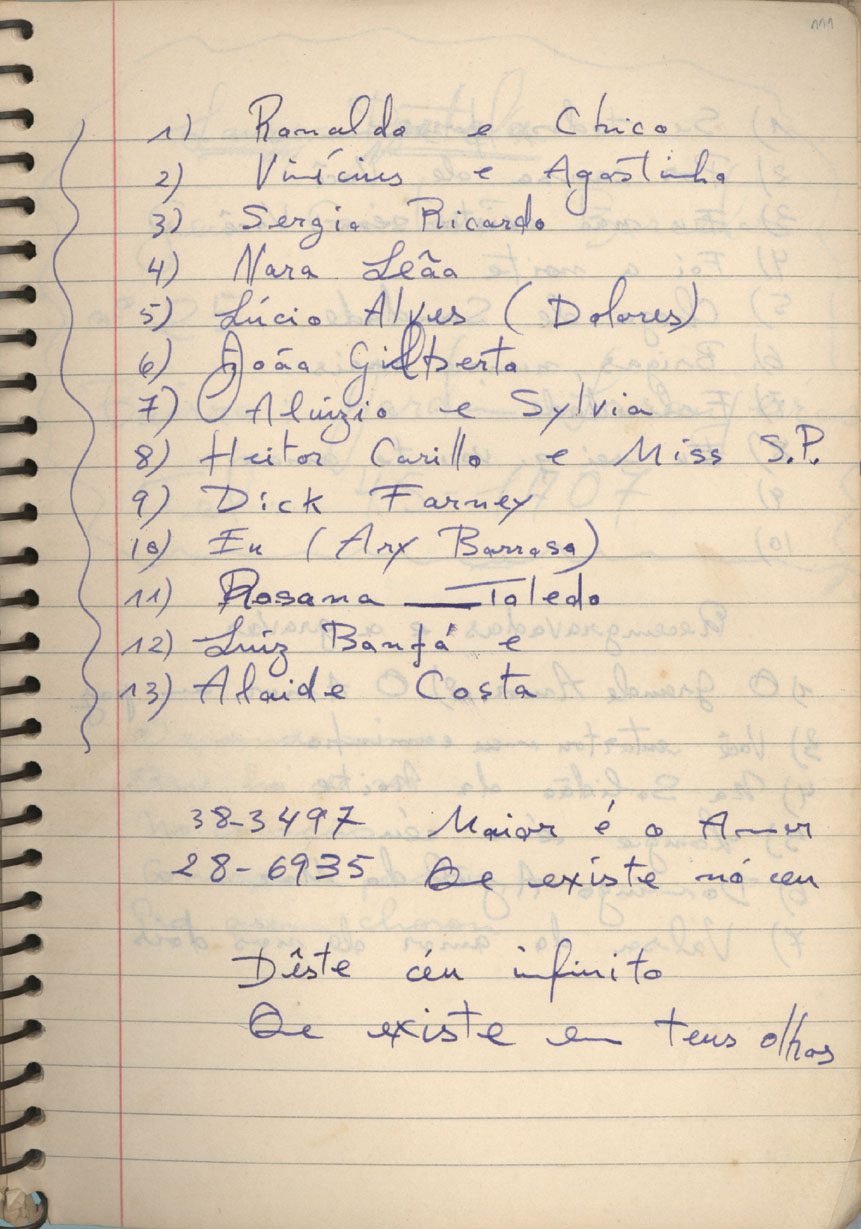 1) Ronaldo e Chico
2) Vinícius e Agostinho
3) Sergio Ricardo
4) Nara Leão
5) Lúcio Alves (Dolores)
6) João Gilberto
7) Aluízio e Sylvia
8) Heitor Carillo e Miss S.P.
9) Dick Farney
10) Eu (Ary Barroso)
11) Rosana Toledo
12) Luiz Bonfá e
13) Alaide Costa
38-3497 Maior é o Amor
28-6935 Que existe no céu
Dêste céu infinito
Que existe em teus olhos